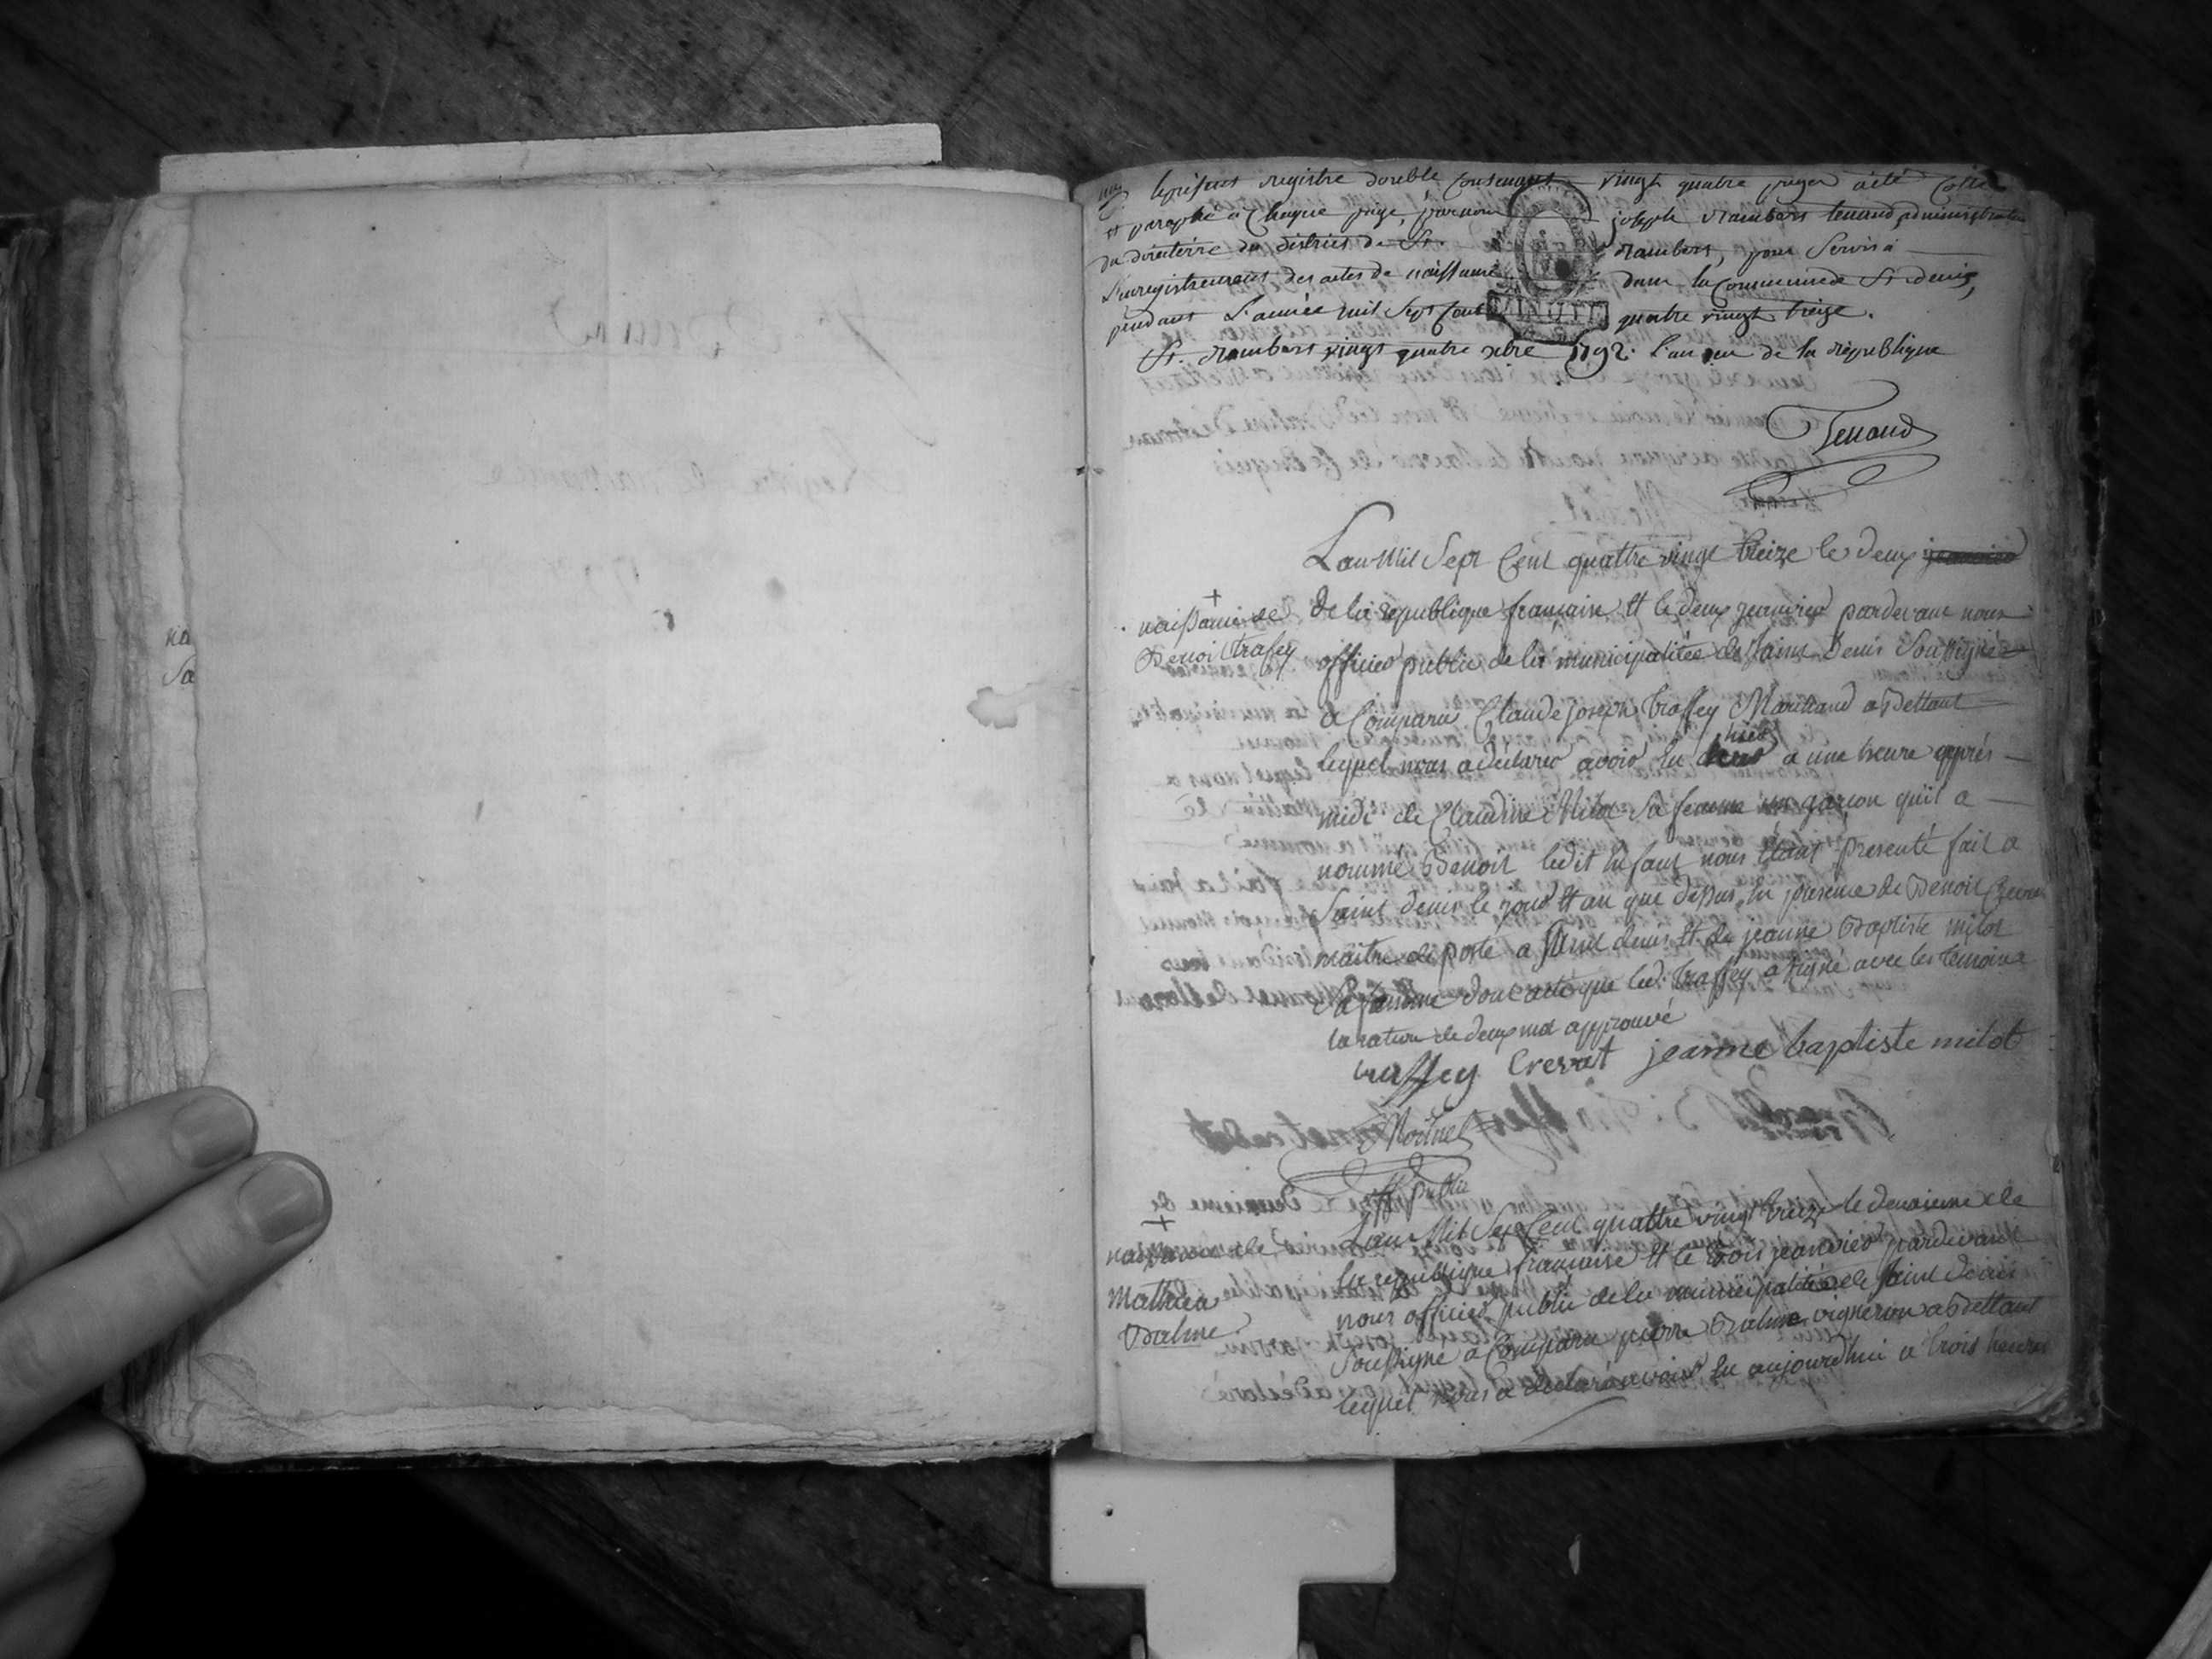 le présent registre double contenant vingt quatre pages a été cotté
et paraphé a chaque page, par nous joseph rambert tenand administrateur
du directoire du district de St. rambert, pour servir a
L'enregistrement des actes de naissance dans la Commune de St denis,
pendant L'année mil sept cent quatre vingt treize.
St. rambert vingt quatre xbre 1792. L'an 1er de la république
Tenand
L'an Mil Sept Cent quattre vingt treize le deux
naissance de
Benoit traffey
de la republique francaise et le deux jeanvier pardevant nous
officier public de la municipalitée de saint Denis soussigné
a Comparu Claude joseph traffey Marchand abitant
lequel nous a déclaré avoir eu hier a une heure apprés
midi de Claudine Milot sa femme un garcon qu'il a
nommé Benoit ledit enfant nous étant presenté fait a
saint denis le jour et an que dessus en presence de Benoit
maitre de poste a saint denis et de jeanne Baptiste milot
dont acte que led. traffey a signé avec les temoins
la rature de deux mot approuvé
traffey Crevat jeanne baptiste milot
off public
L'an Mil Sept Cent quattre vingt treize le deuxieme de
naissance de
Mathieu
Balme
la republique francaise et le trois jeanvier pardevant
nous officier public de la municipalitée de saint Denis
soussigné a Comparu pierre Balme vigneron abitant
lequel nous a declaré avoir eu aujourdhui a trois heures